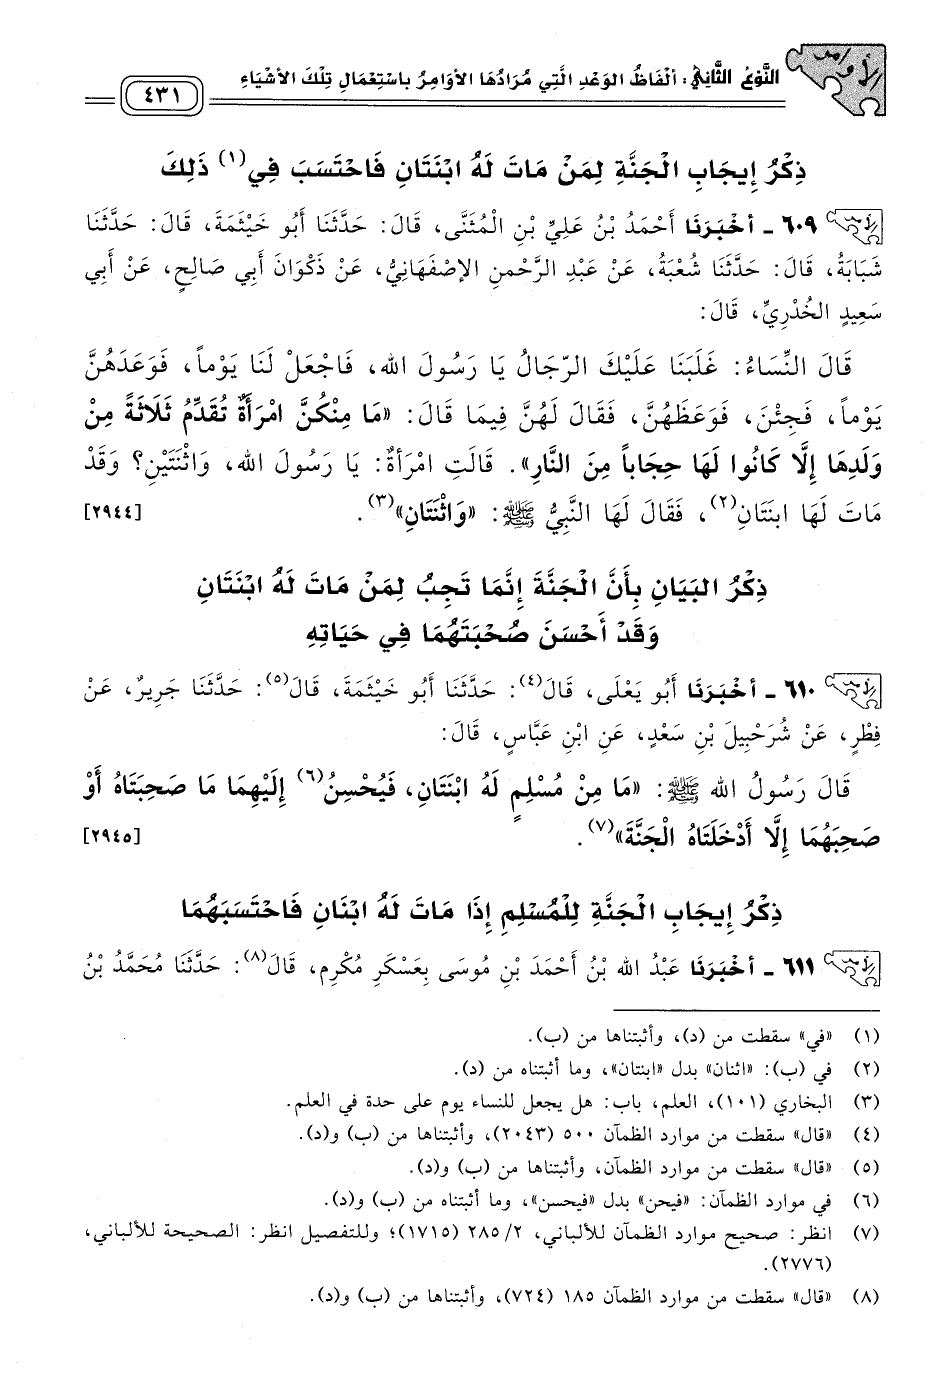 الأوامر
النَّوْعُ الثَّانِي: ألفَاظُ الوَعْدِ الَّتِي مُرَادُهَا الأوَامِرُ بِاسْتِعْمَالِ تِلْكَ الأَشْيَاءِ
٤٣١
ذِكْرُ إِيجَابِ الْجَنَّةِ لِمَنْ مَاتَ لَهُ ابْنَتَانِ فَاحْتَسَبَ فِي(١) ذَلِكَ
٦٠٩ - أَخْبَرَنَا أَحْمَدُ بْنُ عَلِيِّ بْنِ الْمُثَنَّى، قَالَ: حَدَّثَنَا أَبُو خَيْثَمَةَ، قَالَ: حَدَّثَنَا
شَبَابَةُ، قَالَ: حَدَّثَنَا شُعْبَةُ، عَنْ عَبْدِ الرَّحْمنِ الإصْفَهَانِيُّ، عَنْ ذَكْوَانَ أَبِي صَالِحٍ، عَنْ أَبِي
سَعِيدٍ الخُدْرِيِّ، قَالَ:
قَالَ النِّسَاءُ: غَلَبَنَا عَلَيْكَ الرِّجَالُ يَا رَسُولَ الله، فَاجْعَلْ لَنَا يَوْماً، فَوَعَدَهُنَّ
يَوْماً، فَجِئْنَ، فَوَعَظَهُنَّ، فَقَالَ لَهُنَّ فِيمَا قَالَ: «مَا مِنْكُنَّ امْرَأَةٌ تُقَدِّمُ ثَلَاثَةً مِنْ
وَلَدِهَا إِلَّا كَانُوا لَهَا حِجَاباً مِنَ النَّارِ». قَالَتِ امْرَأَةٌ: يَا رَسُولَ الله، وَاثْنَتَيْنِ؟ وَقَدْ
مَاتَ لَهَا ابنَتَانِ(٢)، فَقَالَ لَهَا النَّبِيُّ ﷺ: «وَاثْنَتَانِ»(٣). [٢٩٤٤]
ذِكْرُ البَيَانِ بِأَنَّ الْجَنَّةَ إِنَّمَا تَجِبُ لِمَنْ مَاتَ لَهُ ابْنَتَانِ
وَقَدْ أَحْسَنَ صُحْبَتَهُمَا فِي حَيَاتِهِ
٦١٠ - أَخْبَرَنَا أَبُو يَعْلَى، قَالَ(٤): حَدَّثَنَا أَبُو خَيْثَمَةَ، قَالَ(٥): حَدَّثَنَا جَرِيرٌ، عَنْ
فِطْرٍ، عَنْ شُرَحْبِيلَ بْنِ سَعْدٍ، عَنِ ابْنِ عَبَّاسٍ، قَالَ:
قَالَ رَسُولُ الله ﷺ: «مَا مِنْ مُسْلِمٍ لَهُ ابْنَتَانِ، فَيُحْسِنُ(٦) إِلَيْهِمَا مَا صَحِبَتَاهُ أَوْ
صَحِبَهُمَا إِلَّا أَدْخَلَتَاهُ الْجَنَّةَ»(٧). [٢٩٤٥]
ذِكْرُ إِيجَابِ الْجَنَّةِ لِلْمُسْلِمِ إِذَا مَاتَ لَهُ ابْنَانِ فَاحْتَسَبَهُمَا
٦١١ - أَخْبَرَنَا عَبْدُ الله بْنُ أَحْمَدَ بْنِ مُوسَى بِعَسْكَرِ مُكْرِمٍ، قَالَ(٨): حَدَّثَنَا مُحَمَّدُ بْنُ
(١) «في» سقطت من (د)، وأثبتناها من (ب).
(٢) في (ب): «اثنان» بدل «ابنتان»، وما أثبتناه من (د).
(٣) البخاري (١٠١)، العلم، باب: هل يجعل للنساء يوم على حدة في العلم.
(٤) «قال» سقطت من موارد الظمآن ٥٠٠ (٢٠٤٣)، وأثبتناها من (ب) و(د).
(٥) «قال» سقطت من موارد الظمآن، وأثبتناها من (ب) و(د).
(٦) في موارد الظمآن: «فيحن» بدل «فيحسن»، وما أثبتناه من (ب) و(د).
(٧) انظر: صحيح موارد الظمآن للألباني، ٢/ ٢٨٥ (١٧١٥)؛ وللتفصيل انظر: الصحيحة للألباني،
(٢٧٧٦).
(٨) «قال» سقطت من موارد الظمآن ١٨٥ (٧٢٤)، وأثبتناها من (ب) و(د).